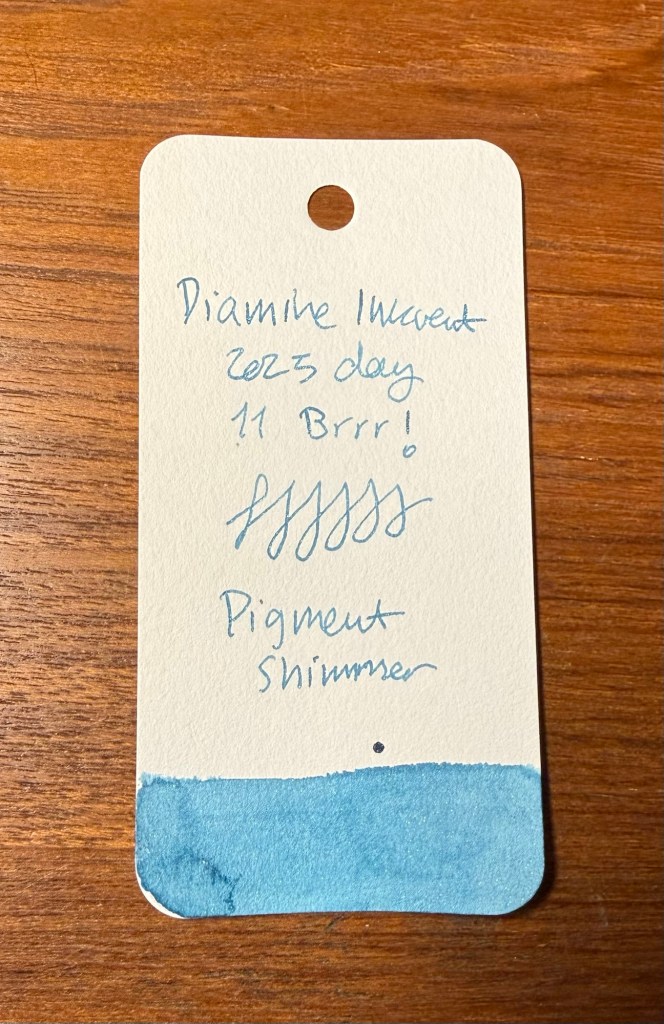 Diamine Inkvent
2025 day
11 Brrr!
Pigment
Shimmer